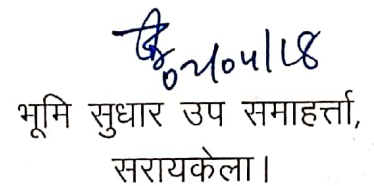 02/04/18
भूमि सुधार उप समाहर्त्ता,
सरायकेला।